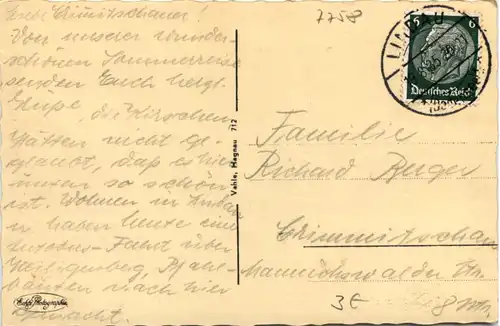 Liebe Crimmitschauer!
Von unserer wunder-
schönen Sommerreise
senden Euch herzl.
Grüße, die Kirschen
hätten nicht ge-
glaubt, daß es hier
unten so schön
ist. Wohnen in Lindau
u haben heute eine
Autobus-Fahrt über
Heiligenberg, Pfahl-
bauten nach hier
gemacht.
Echte Photographie
Vahle, Hagnau 712
7758
LINDAU
6
Deutsches Reich
Familie
Richard Berger
Crimmitschau
Mannichswalder Str.
3€